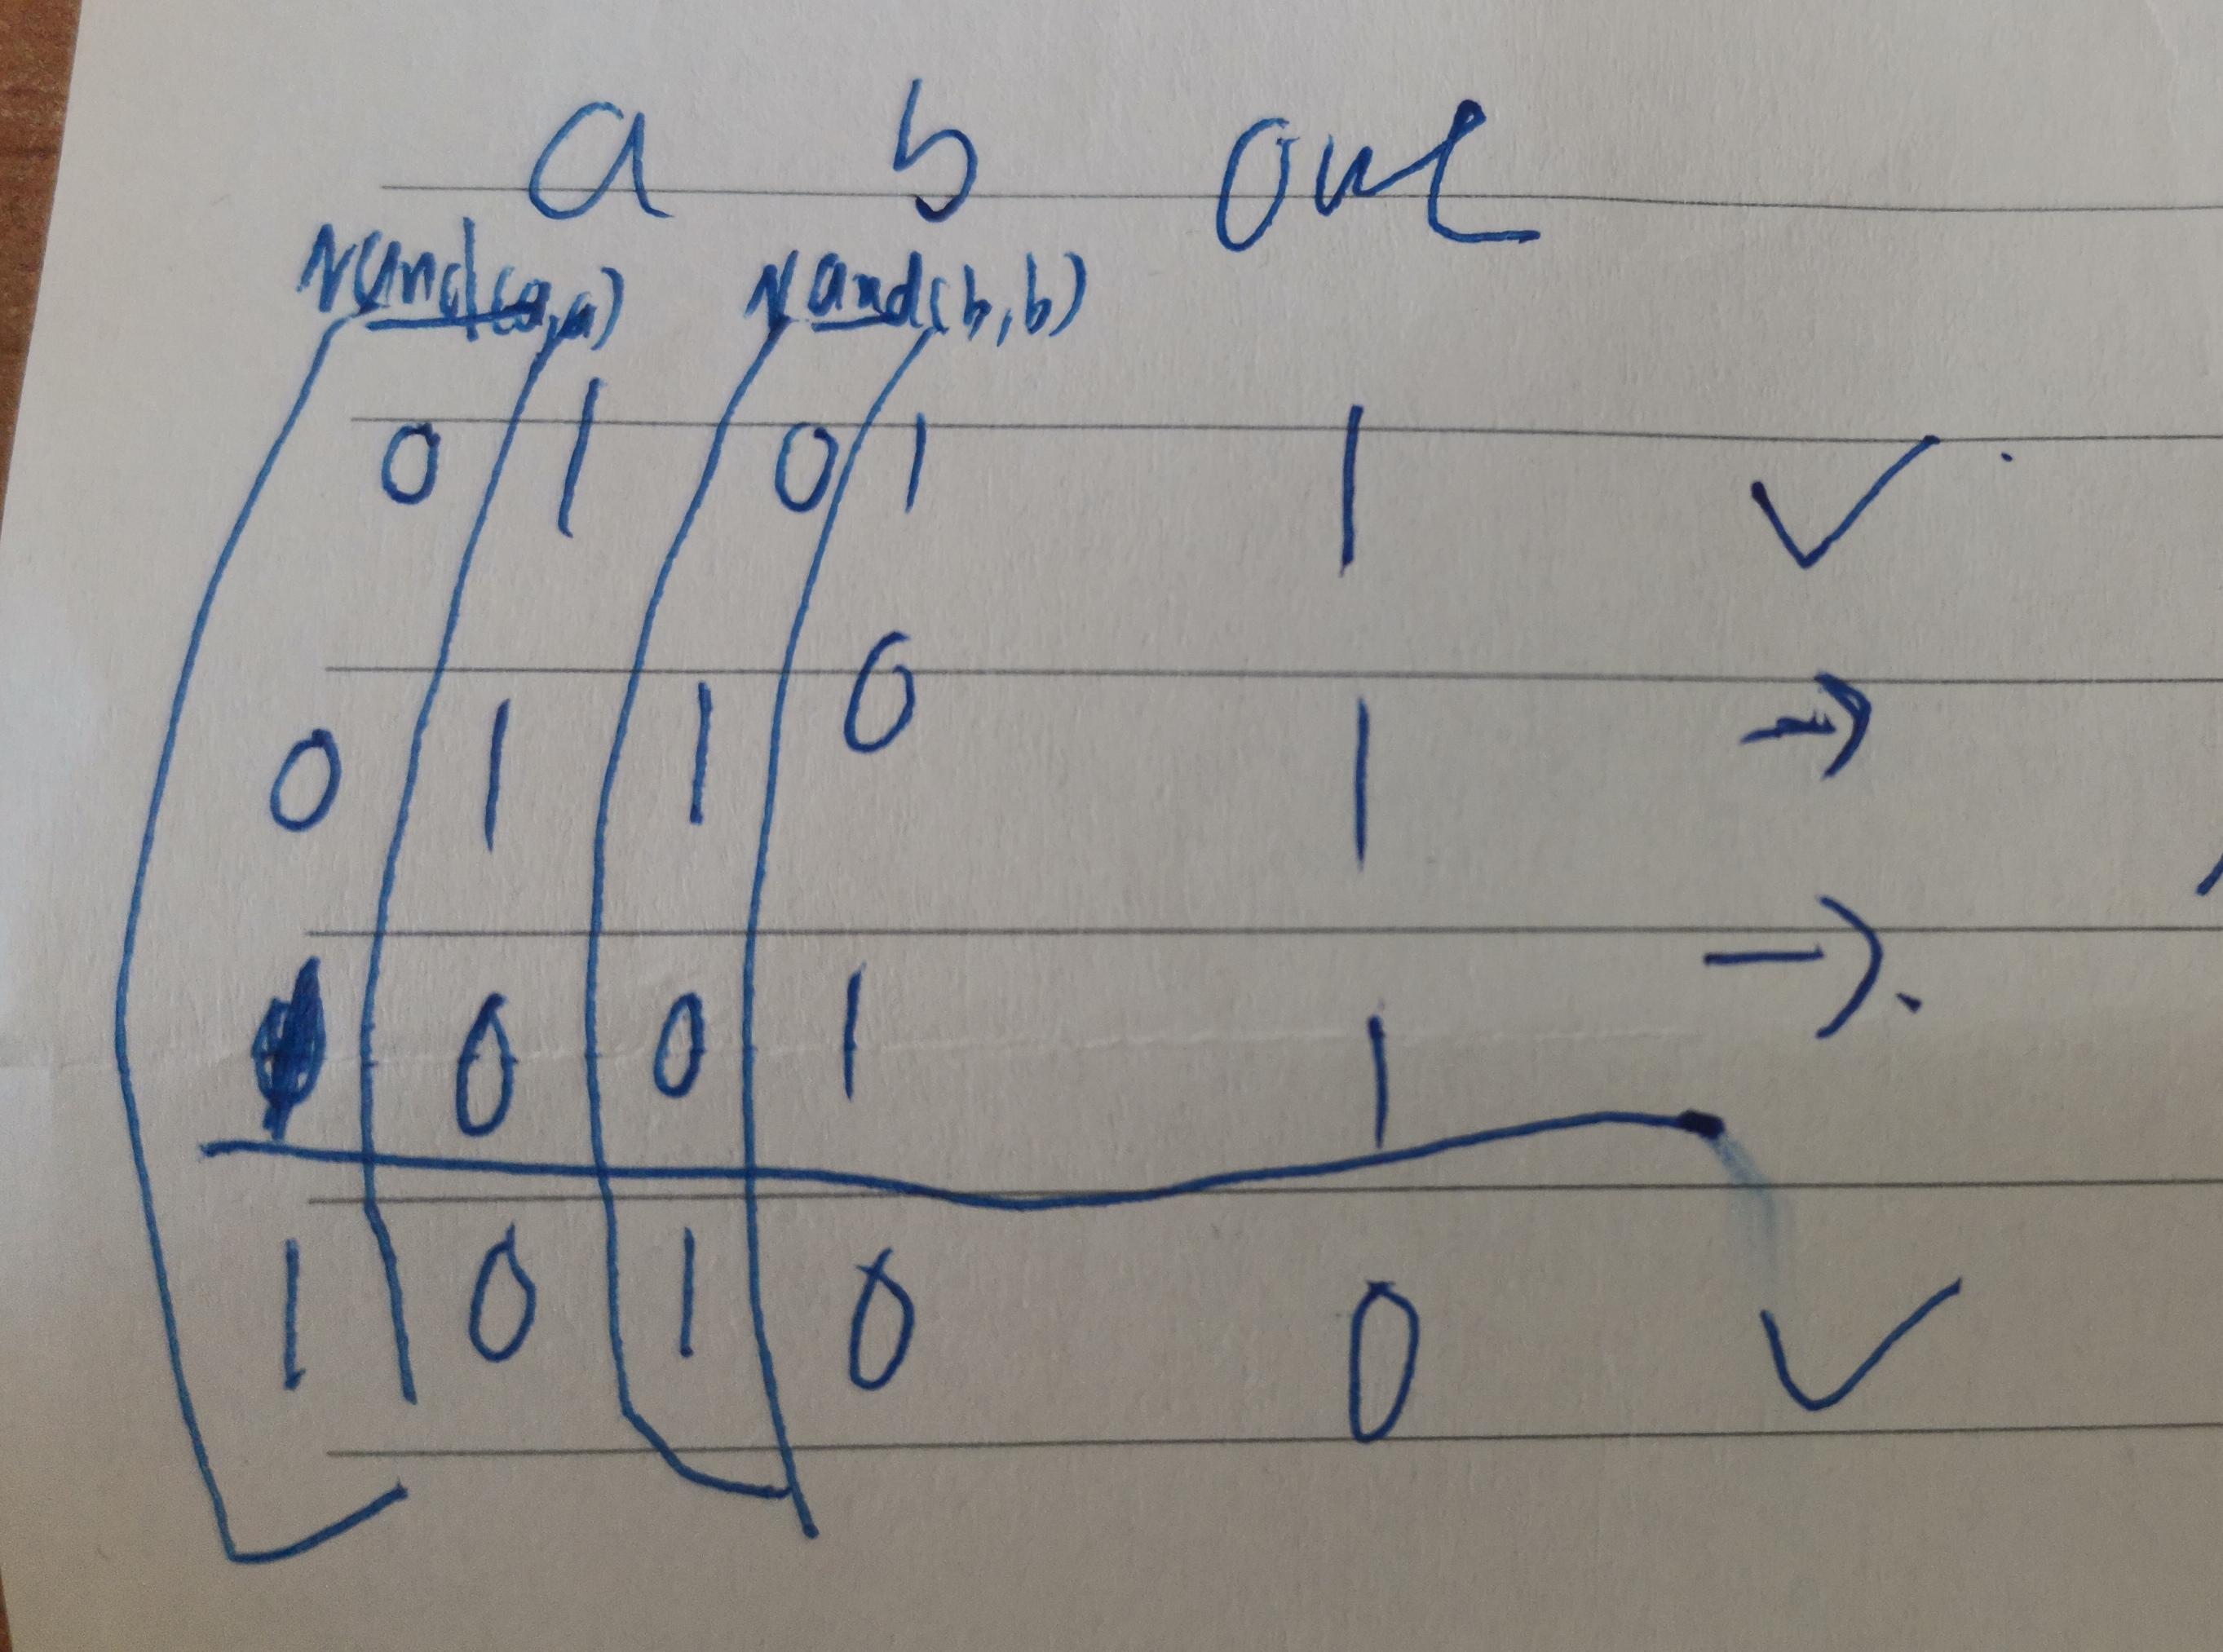 a b out
Nand(a,a) Nand(b,b)
0 1 0 1 1 ✓
0 1 1 0 1 →
0 0 1 1 →
1 0 1 0 0 ✓